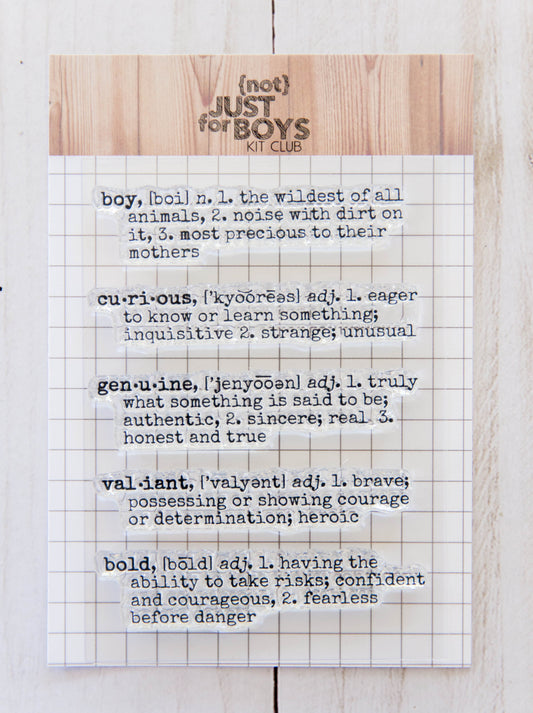 {not}
JUST
for BOYS
KIT CLUB
boy, [boi] n. 1. the wildest of all
animals, 2. noise with dirt on
it, 3. most precious to their
mothers
cu•ri•ous, ['kyo͝orēəs] adj. 1. eager
to know or learn something;
inquisitive 2. strange; unusual
gen•u•ine, ['jenyo͞oən] adj. 1. truly
what something is said to be;
authentic, 2. sincere; real 3.
honest and true
val•iant, ['valyənt] adj. 1. brave;
possessing or showing courage
or determination; heroic
bold, [bōld] adj. 1. having the
ability to take risks; confident
and courageous, 2. fearless
before danger